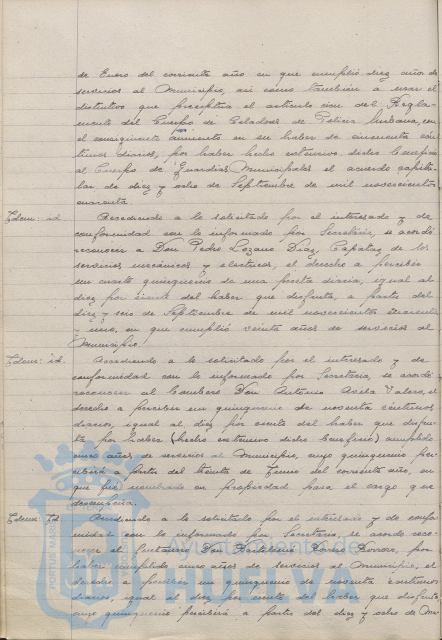 de Enero del corriente año en que cumplió diez años de
servicios al Municipio, así como también a usar el
distintivo que preceptúa el artículo cien del Regla-
mento del Cuerpo de Celadores de Policía Urbana, con
el consiguiente aumento en su haber de cincuenta cén-
timos diarios, por haber hecho extensivo dicho beneficio
al Cuerpo de Guardias Municipales el acuerdo capitu-
lar de diez y ocho de Septiembre de mil novecientos
cuarenta.
Idem: id. Accediendo a lo solicitado por el interesado y de
conformidad con lo informado por Secretaría, se acordó
reconocer a Don Pedro Lozano Díaz, Capataz de los
servicios mecánicos y eléctricos, el derecho a percibir
un cuarto quinquenio de una peseta diaria, igual al
diez por ciento del haber que disfruta, a partir del
diez y seis de Septiembre de mil novecientos cuarenta
y uno, en que cumplió veinte años de servicios al
Municipio.
Idem: id. Accediendo a lo solicitado por el interesado y de
conformidad con lo informado por Secretaría, se acordó
reconocer al Bombero Don Antonio Avila Valero, el
derecho a percibir un quinquenio de noventa céntimos
diarios, igual al diez por ciento del haber que disfru-
ta, por haber (hecho extensivo dicho beneficio) cumplido
cinco años de servicio al Municipio, cuyo quinquenio per-
cibirá a partir del treinta de Enero del corriente año, en
que fué nombrado en propiedad para el cargo que
desempeña.
Idem: Id. Accediendo a lo solicitado por el interesado y de confor-
midad con lo informado por Secretaría, se acordó reco-
nocer al Don Bartolomé Romero, por
haber cumplido cinco años de servicios al Municipio, el
derecho a percibir un quinquenio de noventa céntimos
diarios, igual al diez por ciento del haber que disfruta,
cuyo quinquenio percibirá a partir del diez y ocho de
PORTUS MARIS
Ayuntamiento de
HUELVA